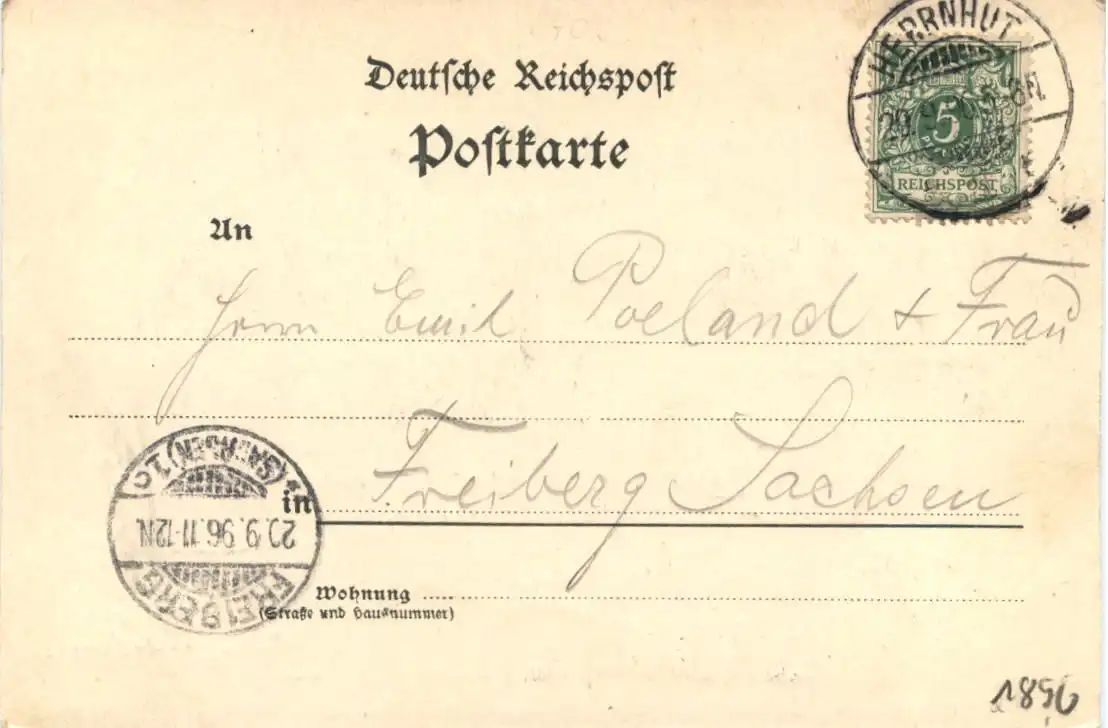 Deutsche Reichspost
Postkarte
HERRNHUT
5
REICHSPOST
An
Herrn Emil Poeland + Frau
Freiberg Sachsen
in
FREIBERG
(SACHSEN) 1.c
9.96.11-12N
Wohnung
(Straße und Hausnummer)
1896